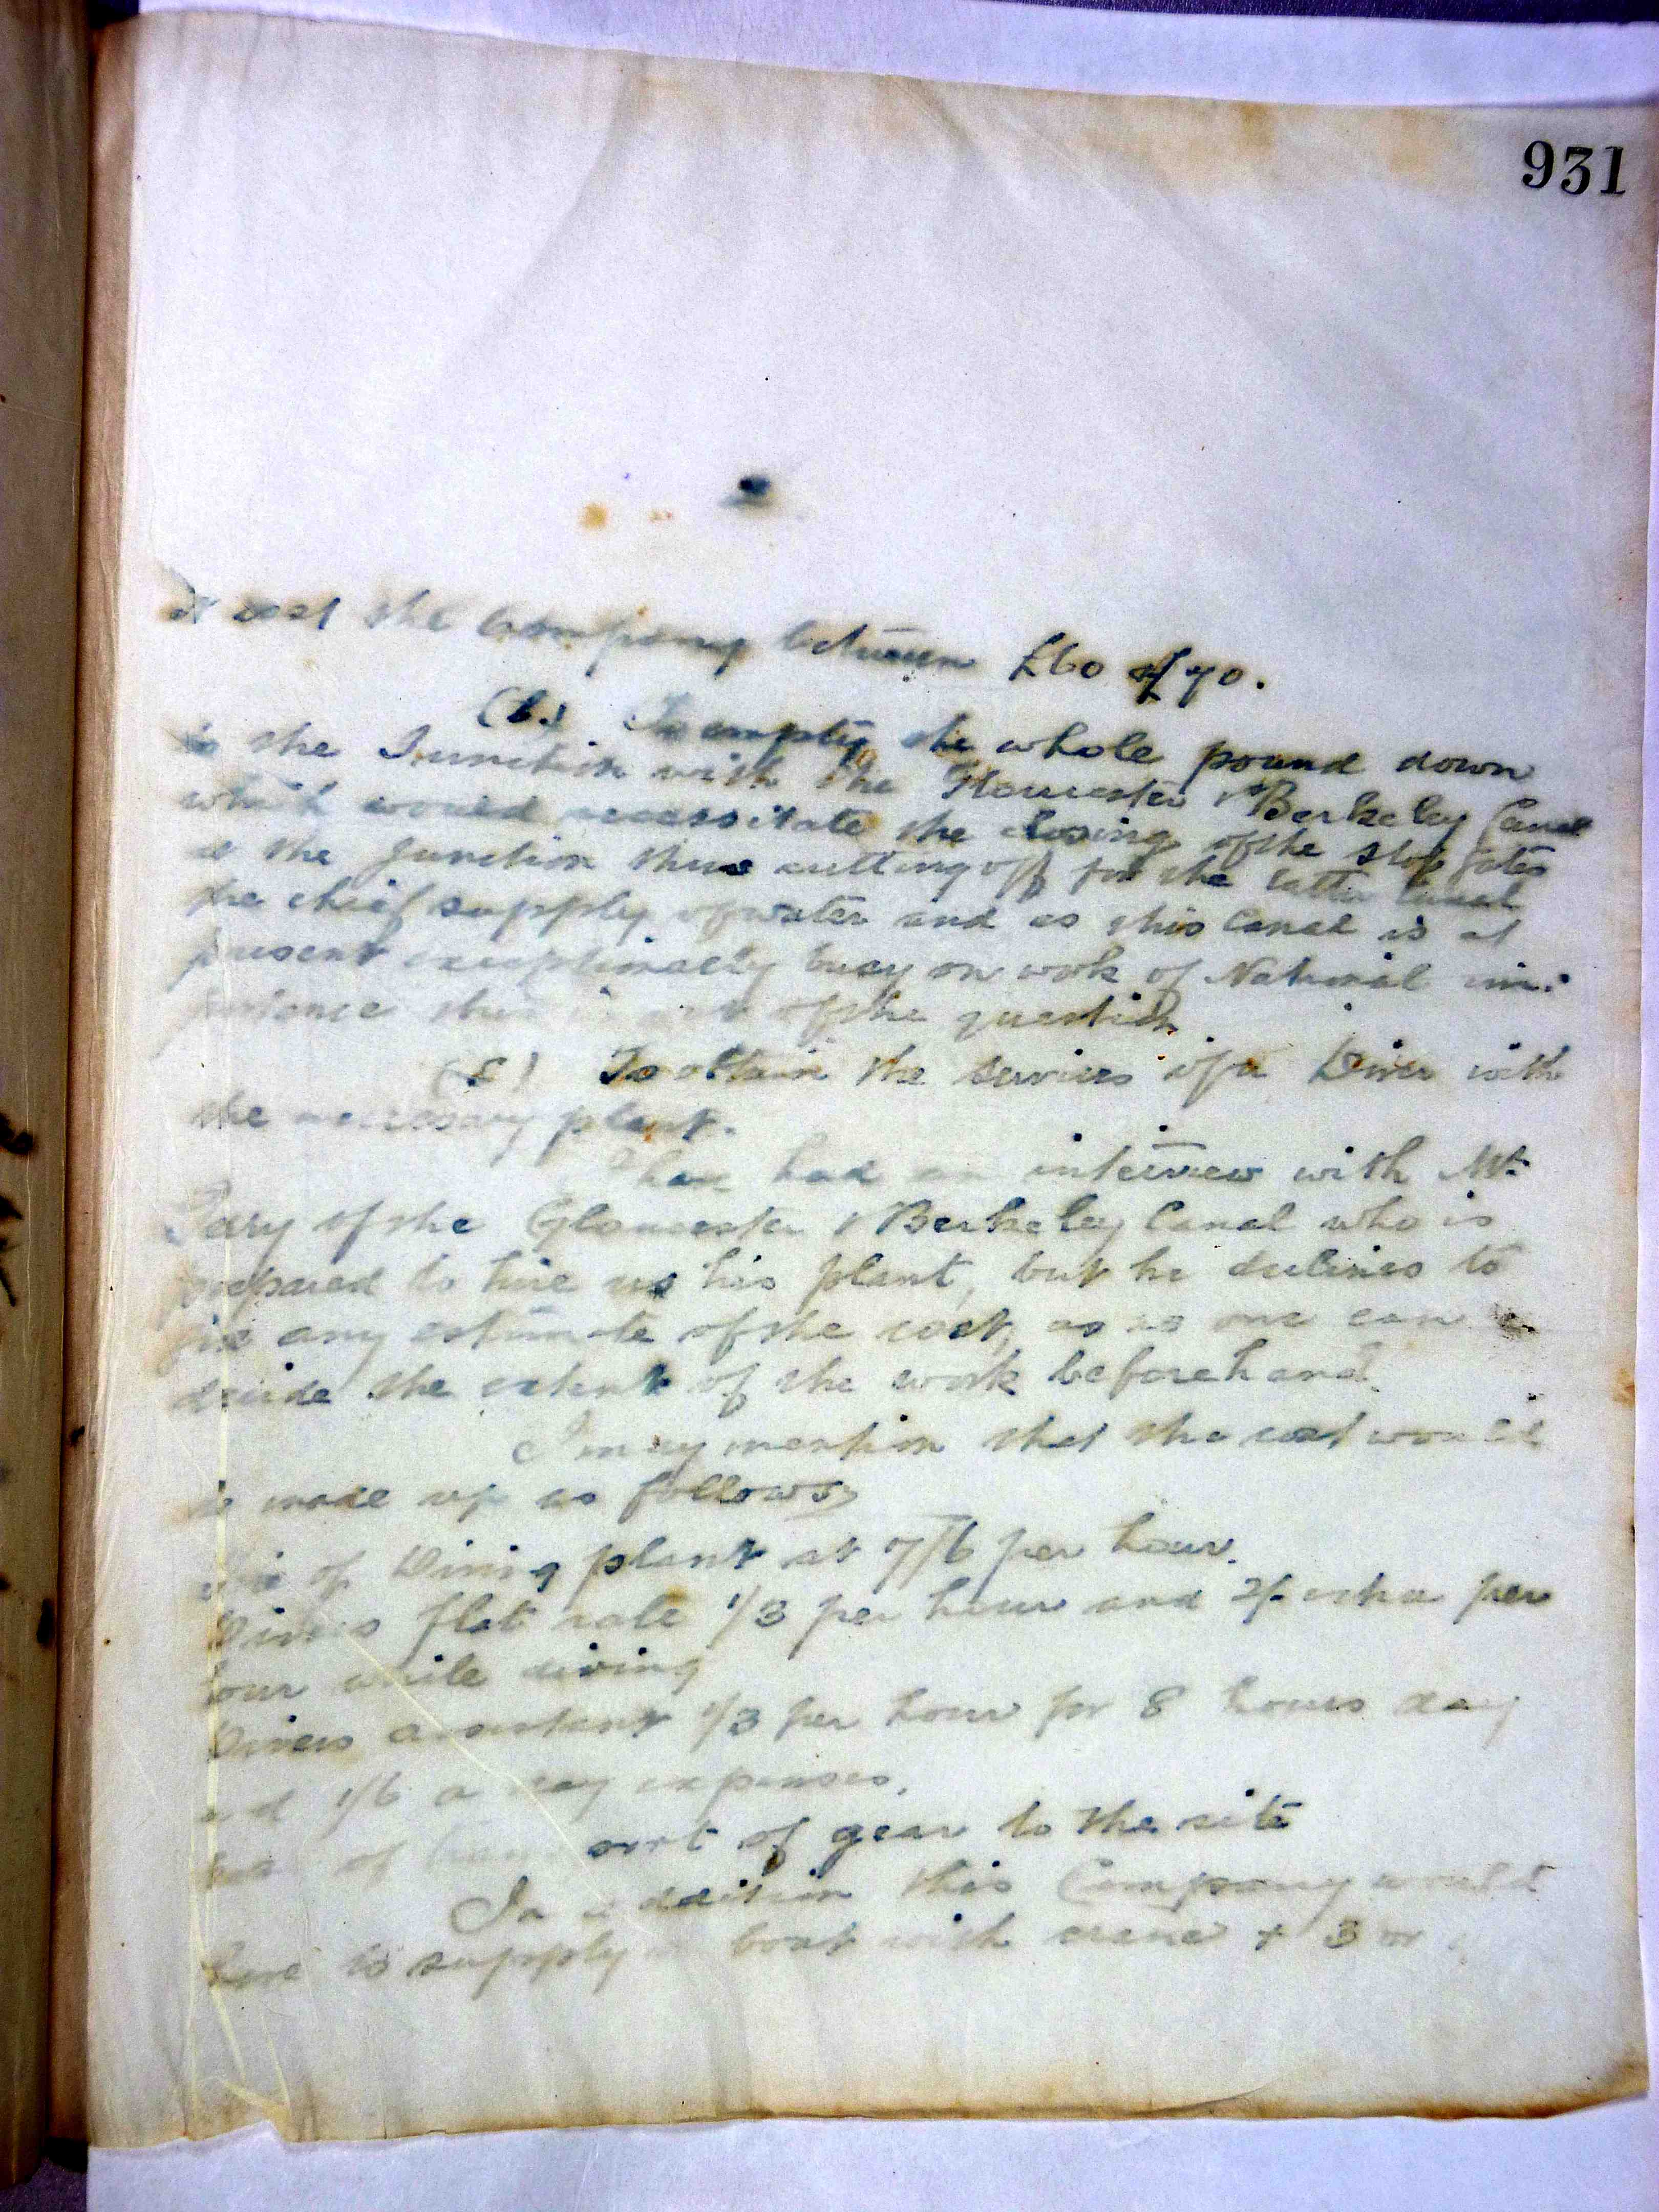 931
it cost the Company between £60 & £70.
(b.) To empty the whole pound down
to the Junction with the Gloucester & Berkeley Canal
which would necessitate the closing of the stop gates
at the junction thus cutting off for the latter Canal
the chief supply of water and as this Canal is at
present exceptionally busy on work of National im-
portance this is out of the question
(c) To obtain the services of a Diver with
the necessary plant.
I have had an interview with Mr
of the Gloucester & Berkeley Canal who is
prepared to hire us his plant, but he declines to
give any estimate of the cost, as no one can
decide the extent of the work beforehand
I may mention that the cost would
be made up as follows
of Diving plant at 7/6 per hour.
Divers flat rate 1/3 per hour and 2/- extra per
hour while diving
Divers assistant 1/3 per hour for 8 hours day
and 1/6 a day expenses.
of transport of gear to the site
In addition this Company would
have to supply a boat with crane & 3 or